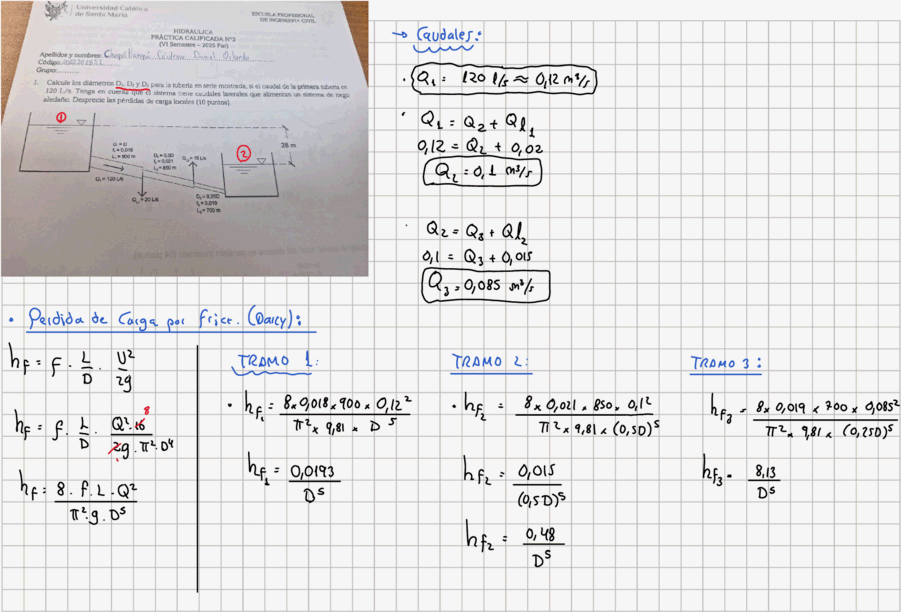 Universidad Católica
de Santa María
ESCUELA PROFESIONAL
DE INGENIERIA CIVIL
HIDRÁULICA
PRÁCTICA CALIFICADA N°3
(VI Semestre – 2025 Par)
Apellidos y nombres:
Código:
Grupo:
1. Calcule los diámetros D₁, D₂ y D₃ para la tubería en serie mostrada, si el caudal de la primera tubería es
120 L/s. Tenga en cuenta que el sistema tiene caudales laterales que alimentan un sistema de riego
aledaño. Desprecie las pérdidas de carga locales (10 puntos).
①
28 m
②
D₁=D
f₁=0,018
L₁=900 m
Q₁=120 L/s
D₂=0,5D
f₂=0,021
L₂=850 m
=15 L/s
=20 L/s
D₃=0,25D
f₃=0,019
L₃=700 m
→ Caudales:
· Q₁ = 120 l/s ≈ 0,12 m³/s
· Q₁ = Q₂ + Ql₁
0,12 = Q₂ + 0,02
Q₂ = 0,1 m³/s
· Q₂ = Q₃ + Ql₂
0,1 = Q₃ + 0,015
Q₃ = 0,085 m³/s
• Perdida de Carga por Fricc. (Darcy):
hF = f · L/D · U²/2g
hF = f · L/D · Q²·16 8/2g·π²·D⁴
hF = 8·f·L·Q²/π²·g·D⁵
TRAMO 1:
· hF₁ = 8×0,018×900×0,12²/π²×9,81×D⁵
hF₁ = 0,0193/D⁵
TRAMO 2:
· hF₂ = 8×0,021×850×0,1²/π²×9,81×(0,5D)⁵
hF₂ = 0,015/(0,5D)⁵
hF₂ = 0,48/D⁵
TRAMO 3:
hF₃ = 8×0,019×700×0,085²/π²×9,81×(0,25D)⁵
hF₃ = 8,13/D⁵